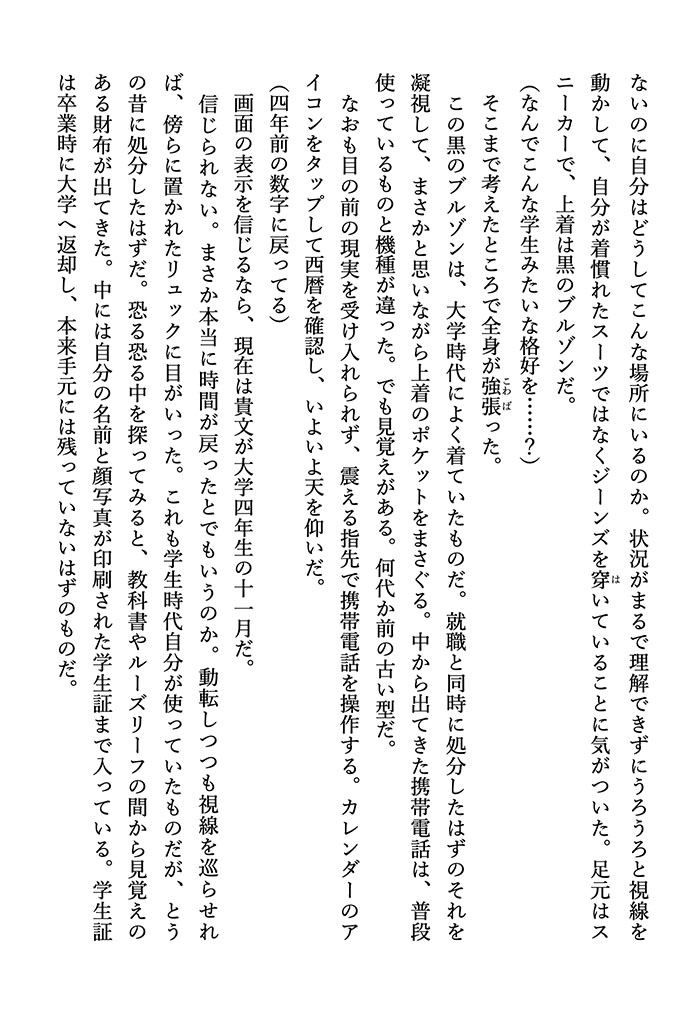 ないのに自分はどうしてこんな場所にいるのか。状況がまるで理解できずにうろうろと視線を
動かして、自分が着慣れたスーツではなくジーンズを穿いていることに気がついた。足元はス
ニーカーで、上着は黒のブルゾンだ。
(なんでこんな学生みたいな格好を……?)
そこまで考えたところで全身が強張った。
この黒のブルゾンは、大学時代によく着ていたものだ。就職と同時に処分したはずのそれを
凝視して、まさかと思いながら上着のポケットをまさぐる。中から出てきた携帯電話は、普段
使っているものと機種が違った。でも見覚えがある。何代か前の古い型だ。
なおも目の前の現実を受け入れられず、震える指先で携帯電話を操作する。カレンダーのア
イコンをタップして西暦を確認し、いよいよ天を仰いだ。
(四年前の数字に戻ってる)
画面の表示を信じるなら、現在は貴文が大学四年生の十一月だ。
信じられない。まさか本当に時間が戻ったとでもいうのか。動転しつつも視線を巡らせれ
ば、傍らに置かれたリュックに目がいった。これも学生時代自分が使っていたものだが、とう
の昔に処分したはずだ。恐る恐る中を探ってみると、教科書やルーズリーフの間から見覚えの
ある財布が出てきた。中には自分の名前と顔写真が印刷された学生証まで入っている。学生証
は卒業時に大学へ返却し、本来手元には残っていないはずのものだ。